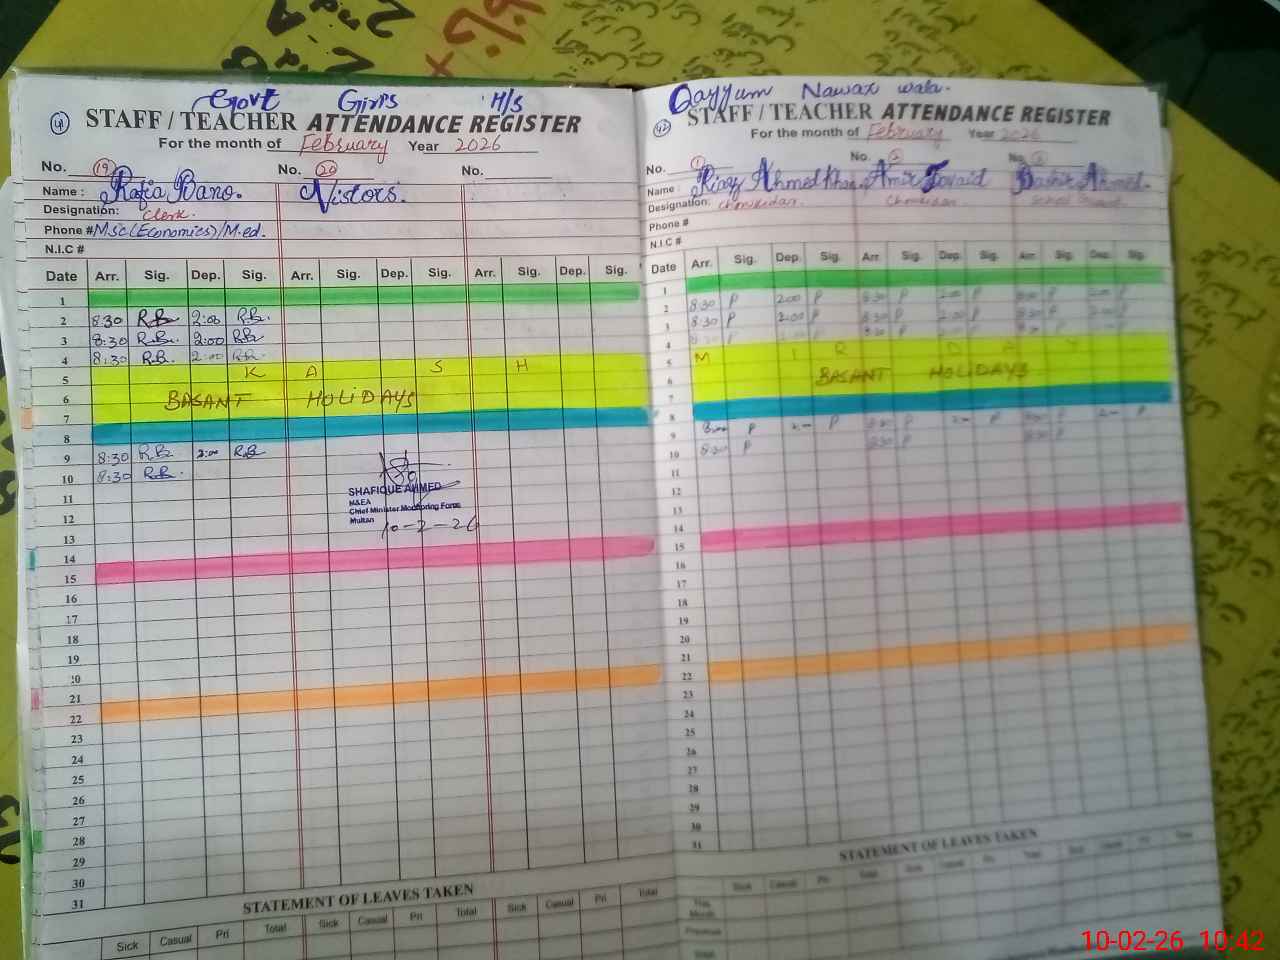 Govt Girls H/S
41
STAFF / TEACHER ATTENDANCE REGISTER
For the month of February Year 2026
No. 19 No. 20 No.
Name : Rafia Bano. Vistors.
Designation: Clerk.
Phone # Msc(Economics)/M.ed.
N.I.C #
Date Arr. Sig. Dep. Sig. Arr. Sig. Dep. Sig. Arr. Sig. Dep. Sig.
1
2 8:30 R.B. 2:00 R.B.
3 8:30 R.B. 2:00 R.B.
4 8:30 R.B. 2:00 R.B.
5 K A S H
6 BASANT HOLIDAYS
7
8
9 8:30 R.B. 2:00 R.B.
10 8:30 R.B.
11
12
13
14
15
16
17
18
19
20
21
22
23
24
25
26
27
28
29
30
31
SHAFIQUE AHMED
M&EA
Chief Minister Monitoring Force
Multan
10-2-26
STATEMENT OF LEAVES TAKEN
Sick Casual Pri Total Sick Casual Pri Total Sick Casual Pri Total
Qayyum Nawaz wala.
42
STAFF / TEACHER ATTENDANCE REGISTER
For the month of February Year 2026
No. 1 No. 2 No. 3
Name : Riaz Ahmed Khan Amir Javaid Bashir Ahmed.
Designation: Chowkidar. Chowkidar
Phone #
N.I.C #
Date Arr. Sig. Dep. Sig. Arr. Sig. Dep. Sig. Arr. Sig. Dep. Sig.
1
2 8:30 P 2:00 P 8:30 P 2:00 P 8:30 P 2:00 P
3 8:30 P 2:00 P 8:30 P 2:00 P 8:30 P 2:00 P
4
5 M I R D A Y
6 BASANT HOLIDAYS
7
8
9 P 2- P P 2- P P 2- P
10 8:30 P 8:30 P 8:30 P
11
12
13
14
15
16
17
18
19
20
21
22
23
24
25
26
27
28
29
30
31
STATEMENT OF LEAVES TAKEN
Sick Casual Pri Total Sick Casual Pri Total Sick Casual Pri Total
This Month
Previous
10-02-26 10:42